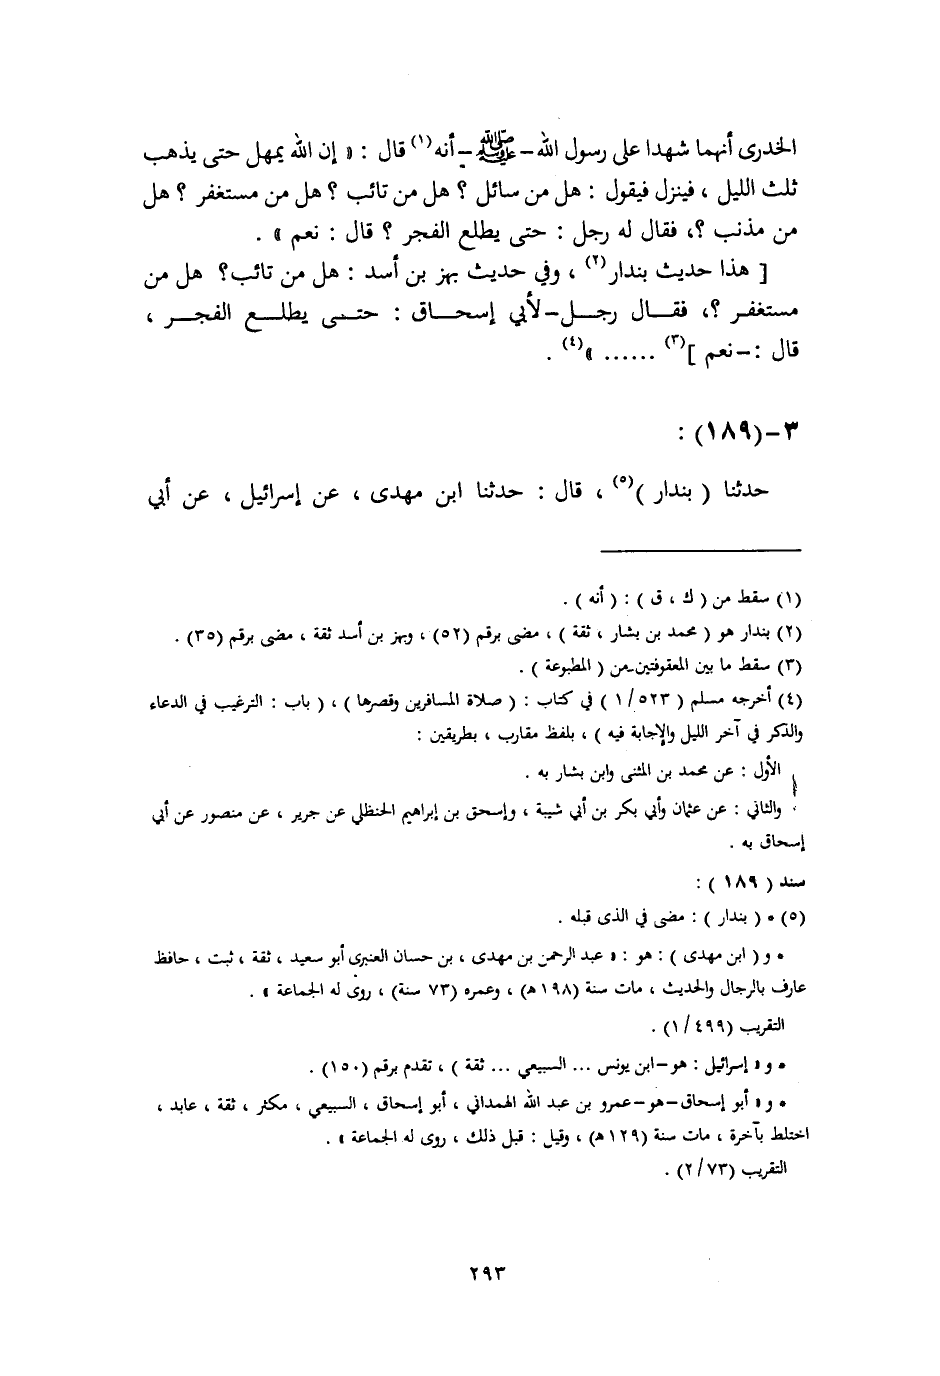 الخدرى أنهما شهدا على رسول الله – ﷺ – أنه(١) قال : « إن الله يمهل حتى يذهب
ثلث الليل ، فينزل فيقول : هل من سائل ؟ هل من تائب ؟ هل من مستغفر ؟ هل
من مذنب ؟، فقال له رجل : حتى يطلع الفجر ؟ قال : نعم » .
[ هذا حديث بندار(٢) ، وفي حديث بهز بن أسد : هل من تائب؟ هل من
مستغفر ؟، فقال رجل–لأبي إسحاق : حتى يطلع الفجر ،
قال :–نعم ](٣) ...... »(٤) .
٣–(١٨٩) :
حدثنا ( بندار )(٥) ، قال : حدثنا ابن مهدى ، عن إسرائيل ، عن أبي
(١) سقط من ( ك ، ق ) : ( أنه ) .
(٢) بندار هو ( محمد بن بشار ، ثقة ) ، مضى برقم (٥٢) ، وبهز بن أسد ثقة ، مضى برقم (٣٥) .
(٣) سقط ما بين المعقوفتين–من ( المطبوعة ) .
(٤) أخرجه مسلم ( ١/٥٢٣ ) في كتاب : ( صلاة المسافرين وقصرها ) ، ( باب : الترغيب في الدعاء
والذكر في آخر الليل والإجابة فيه ) ، بلفظ مقارب ، بطريقين :
الأول : عن محمد بن المثنى وابن بشار به .
والثاني : عن عثمان وأبي بكر بن أبي شيبة ، وإسحق بن إبراهيم الحنظلي عن جرير ، عن منصور عن أبي
إسحاق به .
سند ( ١٨٩ ) :
(٥) • ( بندار ) : مضى في الذى قبله .
• و ( ابن مهدى ) : هو : « عبد الرحمن بن مهدى ، بن حسان العنبرى أبو سعيد ، ثقة ، ثبت ، حافظ
عارف بالرجال والحديث ، مات سنة (١٩٨ هـ) ، وعمره (٧٣ سنة) ، روى له الجماعة » .
التقريب (١/٤٩٩) .
• و « إسرائيل : هو–ابن يونس ... السبيعي ... ثقة ) ، تقدم برقم (١٥٠) .
• و « أبو إسحاق–هو–عمرو بن عبد الله الهمداني ، أبو إسحاق ، السبيعي ، مكثر ، ثقة ، عابد ،
اختلط بآخرة ، مات سنة (١٢٩ هـ) ، وقيل : قبل ذلك ، روى له الجماعة » .
التقريب (٢/٧٣) .
٢٩٣